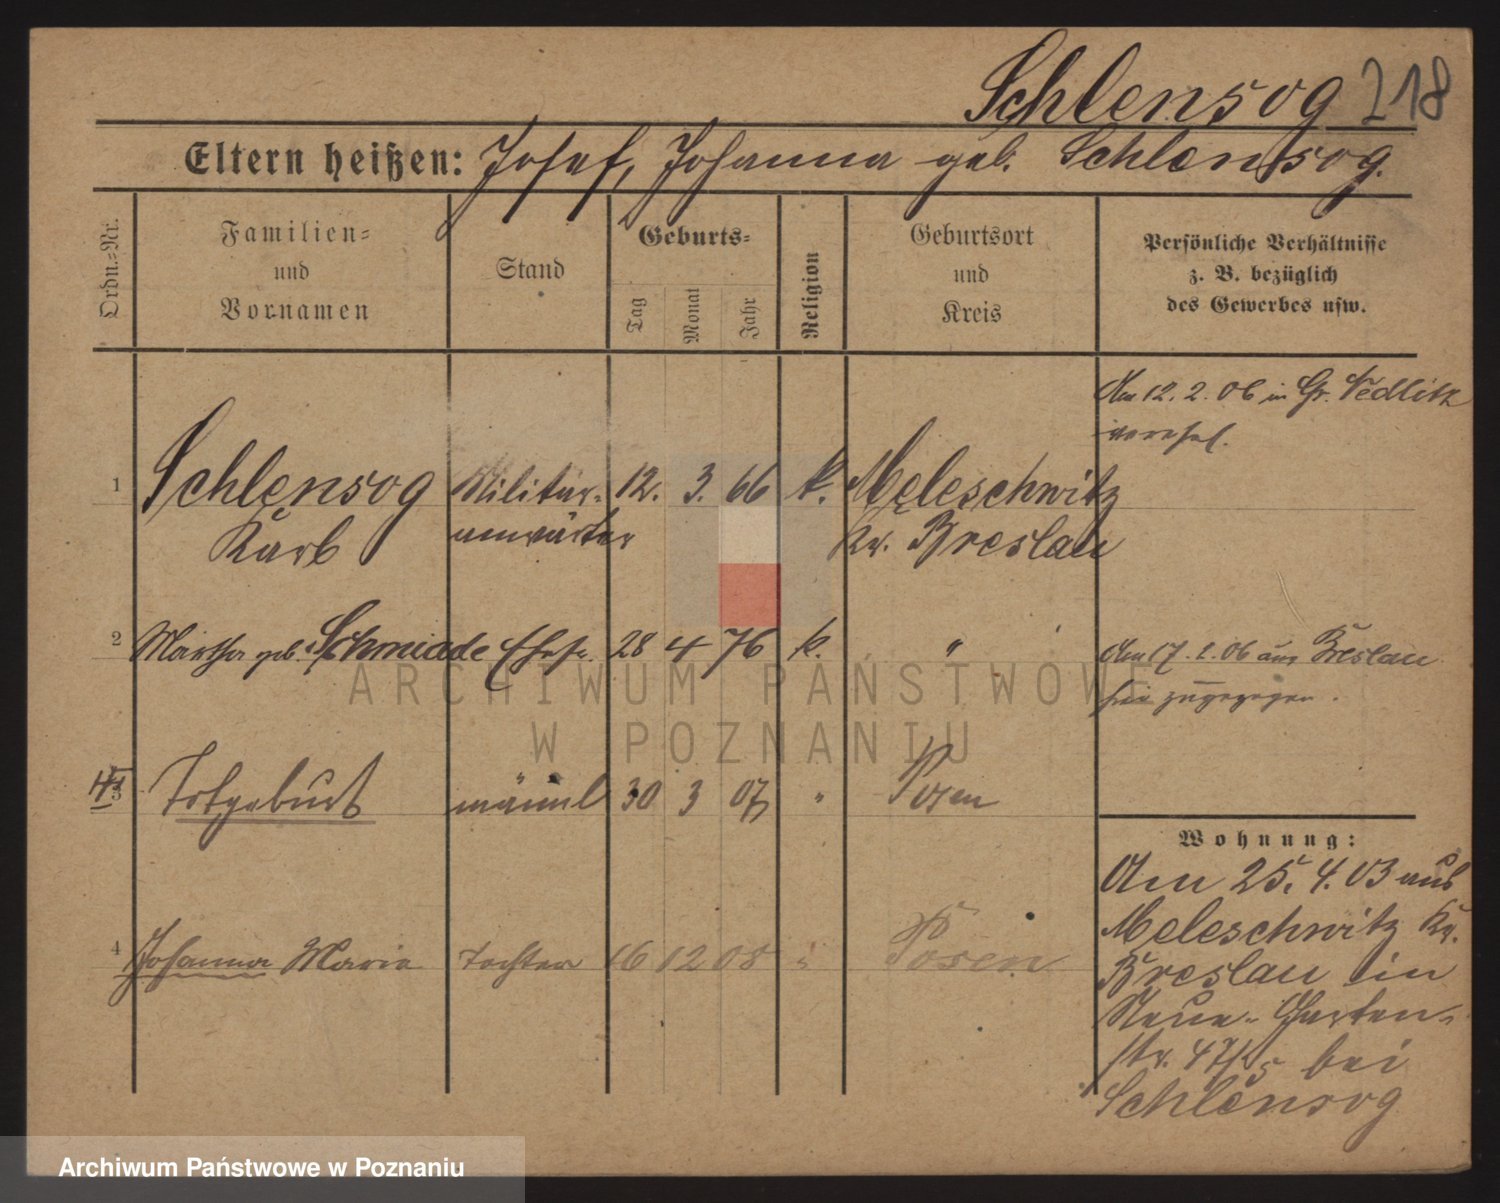 Schlensog 218
Eltern heißen: Josef, Johanna geb. Schlensog.
Ordn.-Nr.
Familien-
und
Vornamen
Stand
Geburts-
Tag
Monat
Jahr
Religion
Geburtsort
und
Kreis
Persönliche Verhältnisse
z. B. bezüglich
des Gewerbes usw.
Am 12. 2. 06 in Gr. Nedlitz
verehel.
1 Schlensog Militär- 12. 3. 66 k. Meleschwitz
Karl anwärter Kr. Breslau
2 Martha geb. Schmiade Ehefr. 28 4 76 k. "
Am 17. 2. 06 aus Breslau
hier zugezogen.
ARCHIWUM PAŃSTWOWE
W POZNANIU
3 Totgeburt männl 30 3 07 " Posen
Wohnung:
Am 25. 4. 03 aus
Meleschwitz Kr.
Breslau in
Neue-Garten-
str. 47/5 bei
Schlensog
4 Johanna Maria Tochter 16 12 08 " Posen
Archiwum Państwowe w Poznaniu